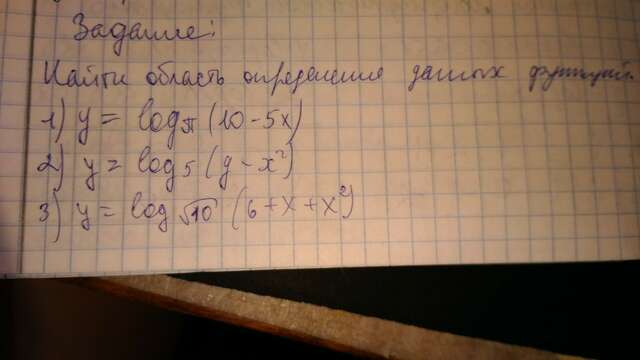 Задание:
Найти область определения данных функций.
1) y = log_π (10 - 5x)
2) y = log_5 (9 - x²)
3) y = log_√10 (6 + x + x²)